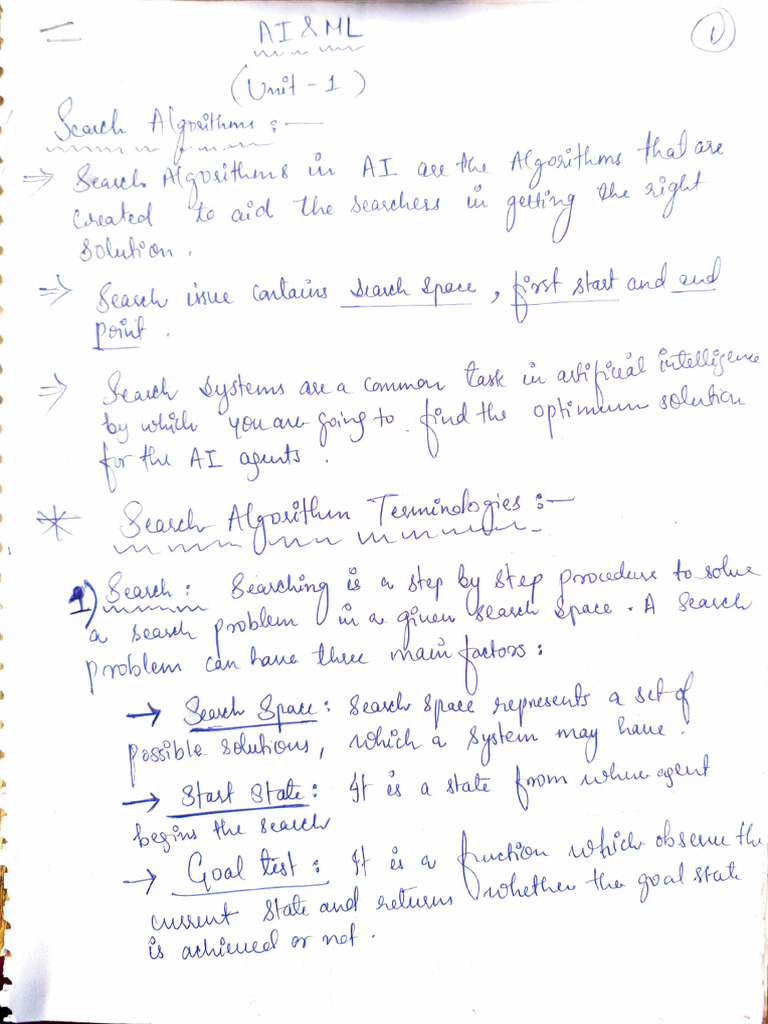 AI & ML
1
(Unit - 1)
Search Algorithms :—
⇒ Search Algorithms in AI are the Algorithms that are
created to aid the searchers in getting the right
solution.
⇒ Search issue contains search space, first start and end
point.
⇒ Search systems are a common task in artificial intelligence
by which you are going to find the optimum solution
for the AI agents.
* Search Algorithm Terminologies :—
1) Search : Searching is a step by step procedure to solve
a search problem in a given search space. A search
problem can have three main factors :
→ Search Space : Search space represents a set of
possible solutions, which a system may have.
→ Start State : It is a state from where agent
begins the search
→ Goal test : It is a function which observe the
current state and returns whether the goal state
is achieved or not.